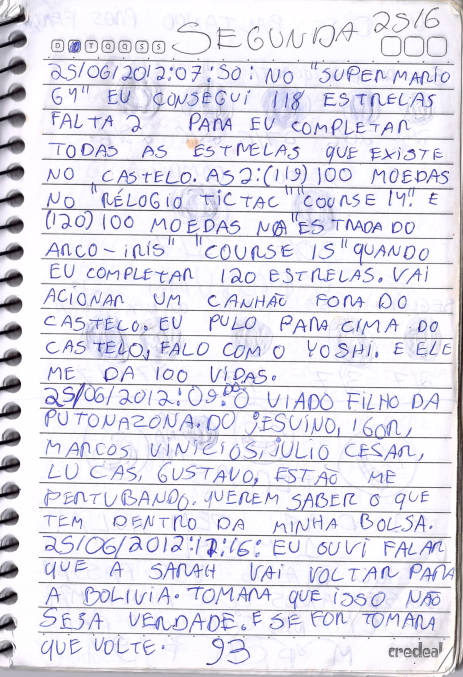 SEGUNDA 25/6
D S T Q Q S S
25/06/2012:07:50: NO "SUPER MARIO
64" EU CONSEGUI 118 ESTRELAS
FALTA 2 PARA EU COMPLETAR
TODAS AS ESTRELAS QUE EXISTE
NO CASTELO. AS 2:(119) 100 MOEDAS
NO "RÉLOGIO TICTAC" "COURSE 14". E
(120) 100 MOEDAS NA "ESTRADA DO
ARCO-IRÍS" "COURSE 15" QUANDO
EU COMPLETAR 120 ESTRELAS. VAI
ACIONAR UM CANHÃO FORA DO
CASTELO. EU PULO PARA CIMA DO
CASTELO, FALO COM O YOSHI. E ELE
ME DA 100 VIDAS.
25/06/2012:09:00 VIADO FILHO DA
PUTONAZONA. DO JESUÍNO, IGOR,
MARCOS VINICIOS, JULIO CESAR,
LUCAS, GUSTAVO, ESTÃO ME
PERTUBANDO. QUEREM SABER O QUE
TEM DENTRO DA MINHA BOLSA.
25/06/2012:12:16: EU OUVI FALAR
QUE A SARAH VAI VOLTAR PARA
A BOLIVIA. TOMARA QUE ISSO NÃO
SEJA VERDADE. E SE FOR TOMARA
QUE VOLTE. 93 credeal